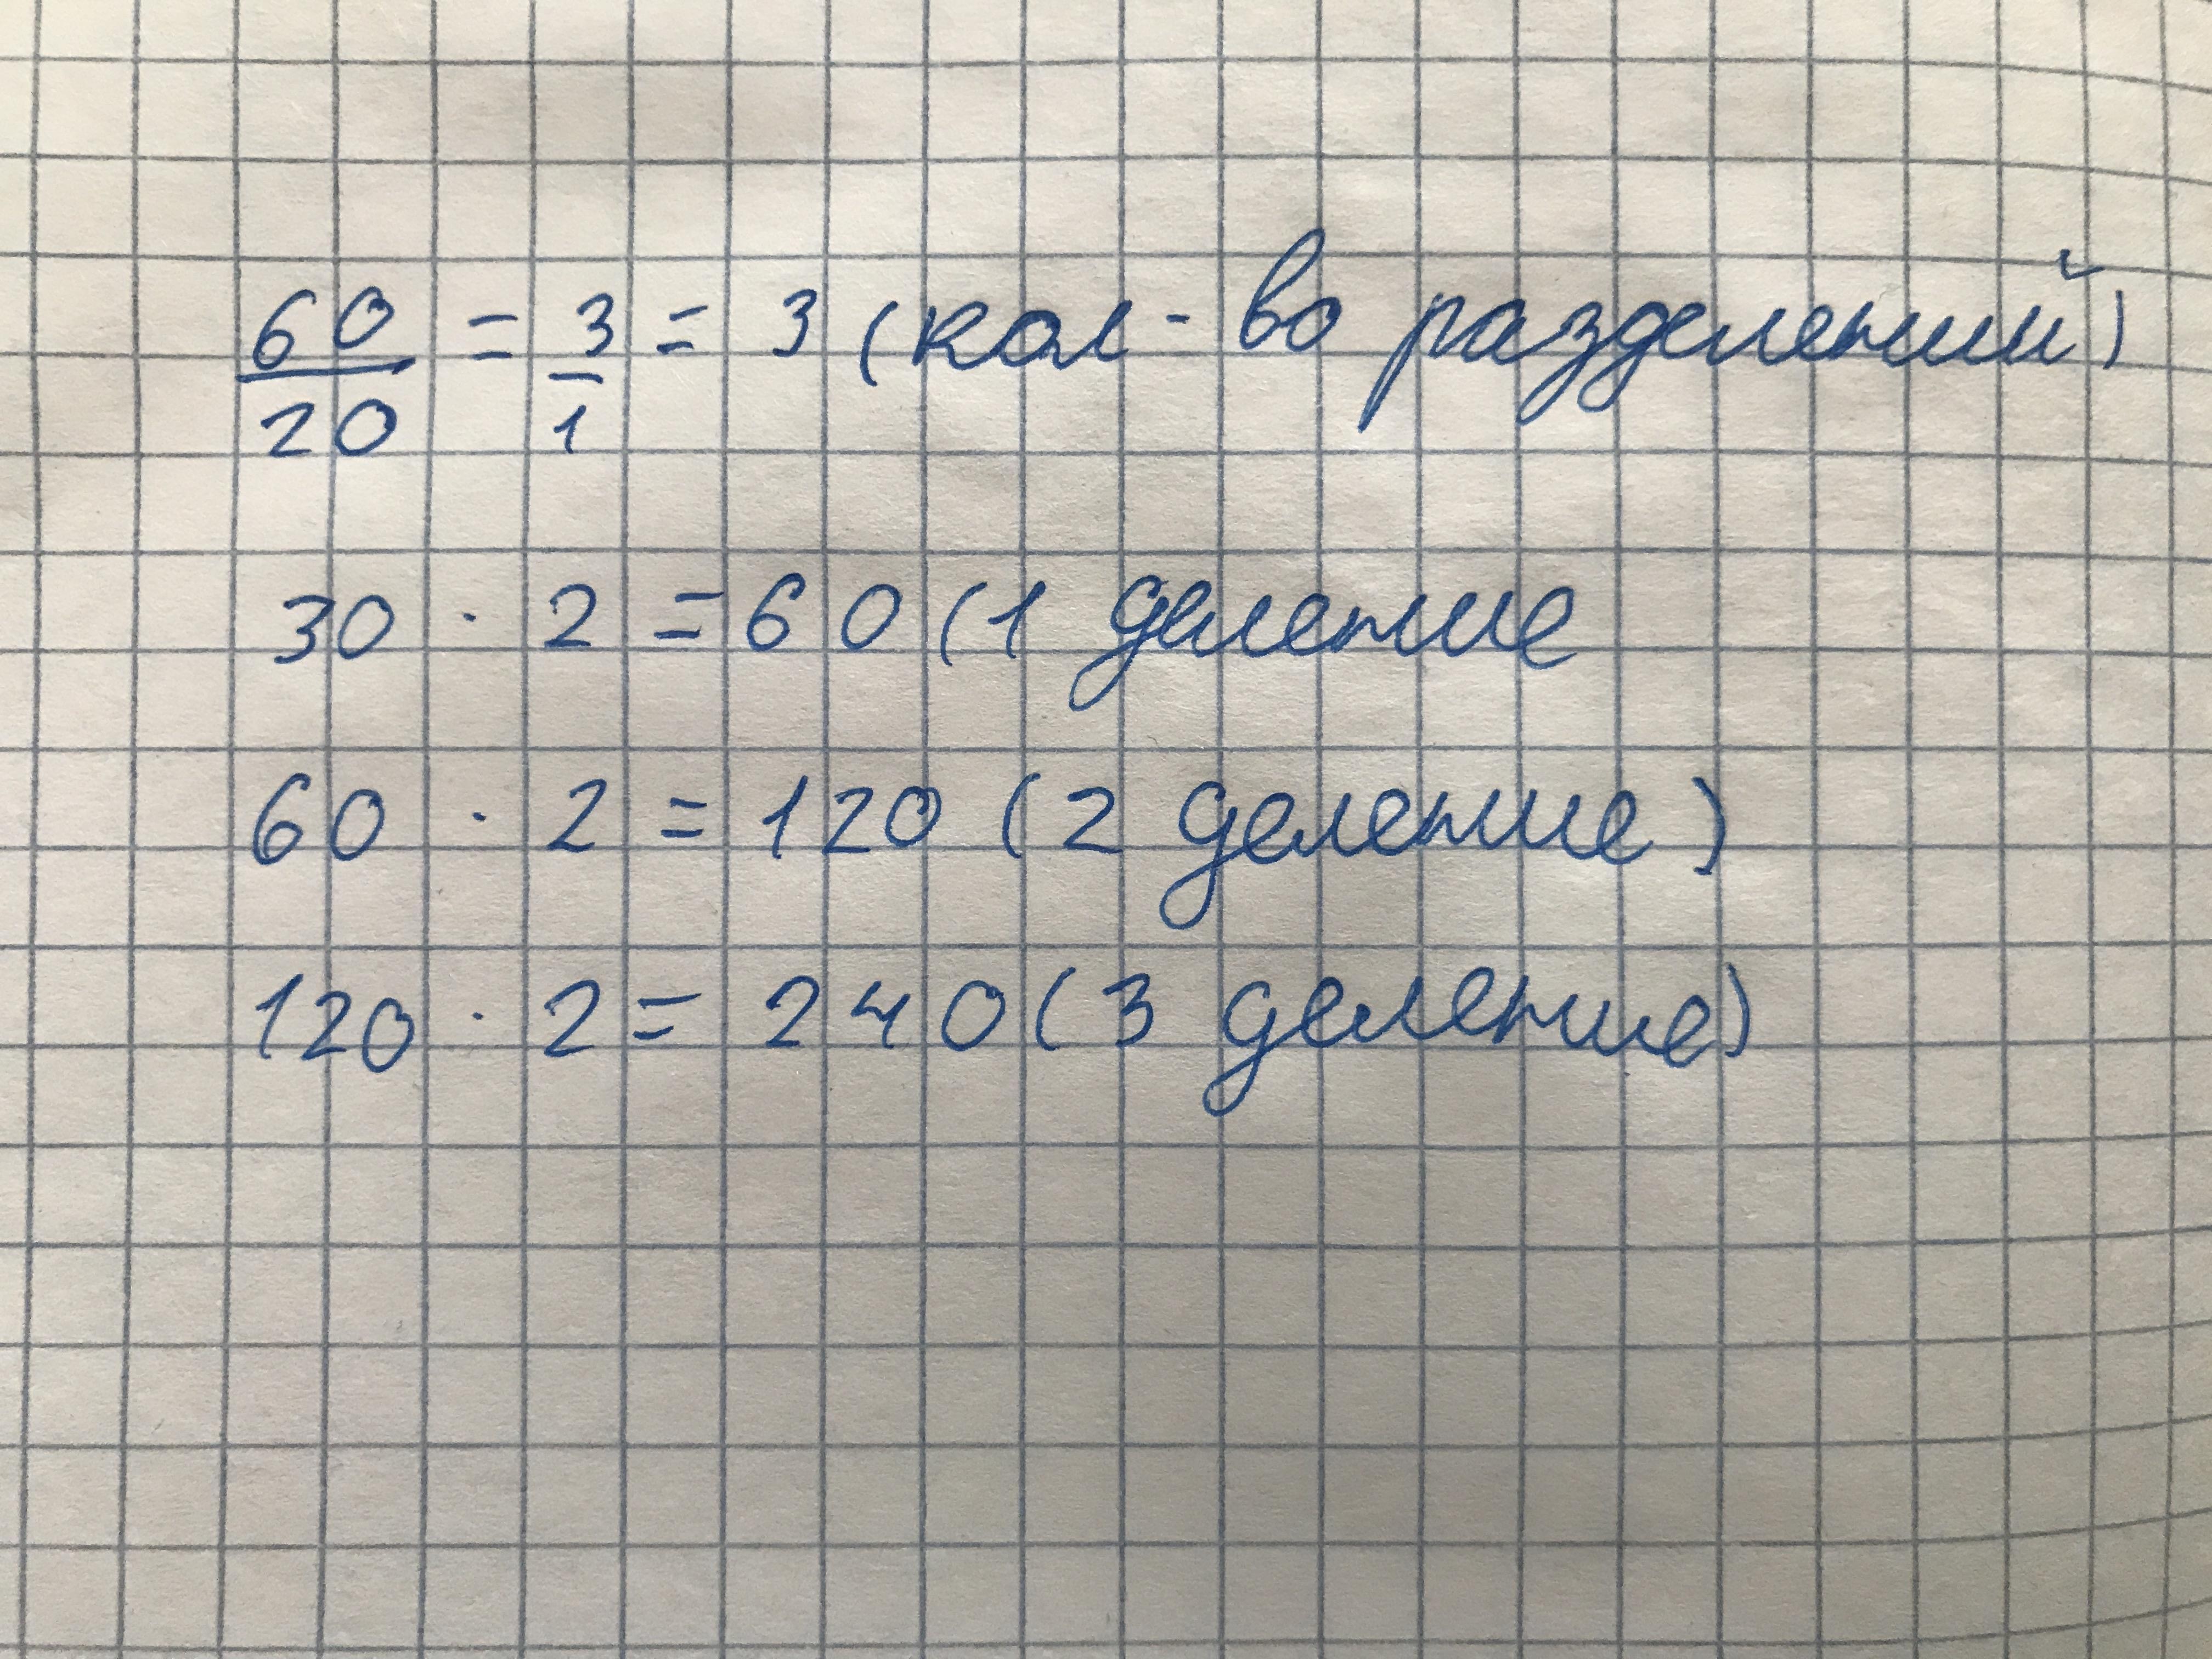 60/20 = 3/1 = 3 (кол-во разделений)
30 · 2 = 60 (1 деление
60 · 2 = 120 (2 деление)
120 · 2 = 240 (3 деление)